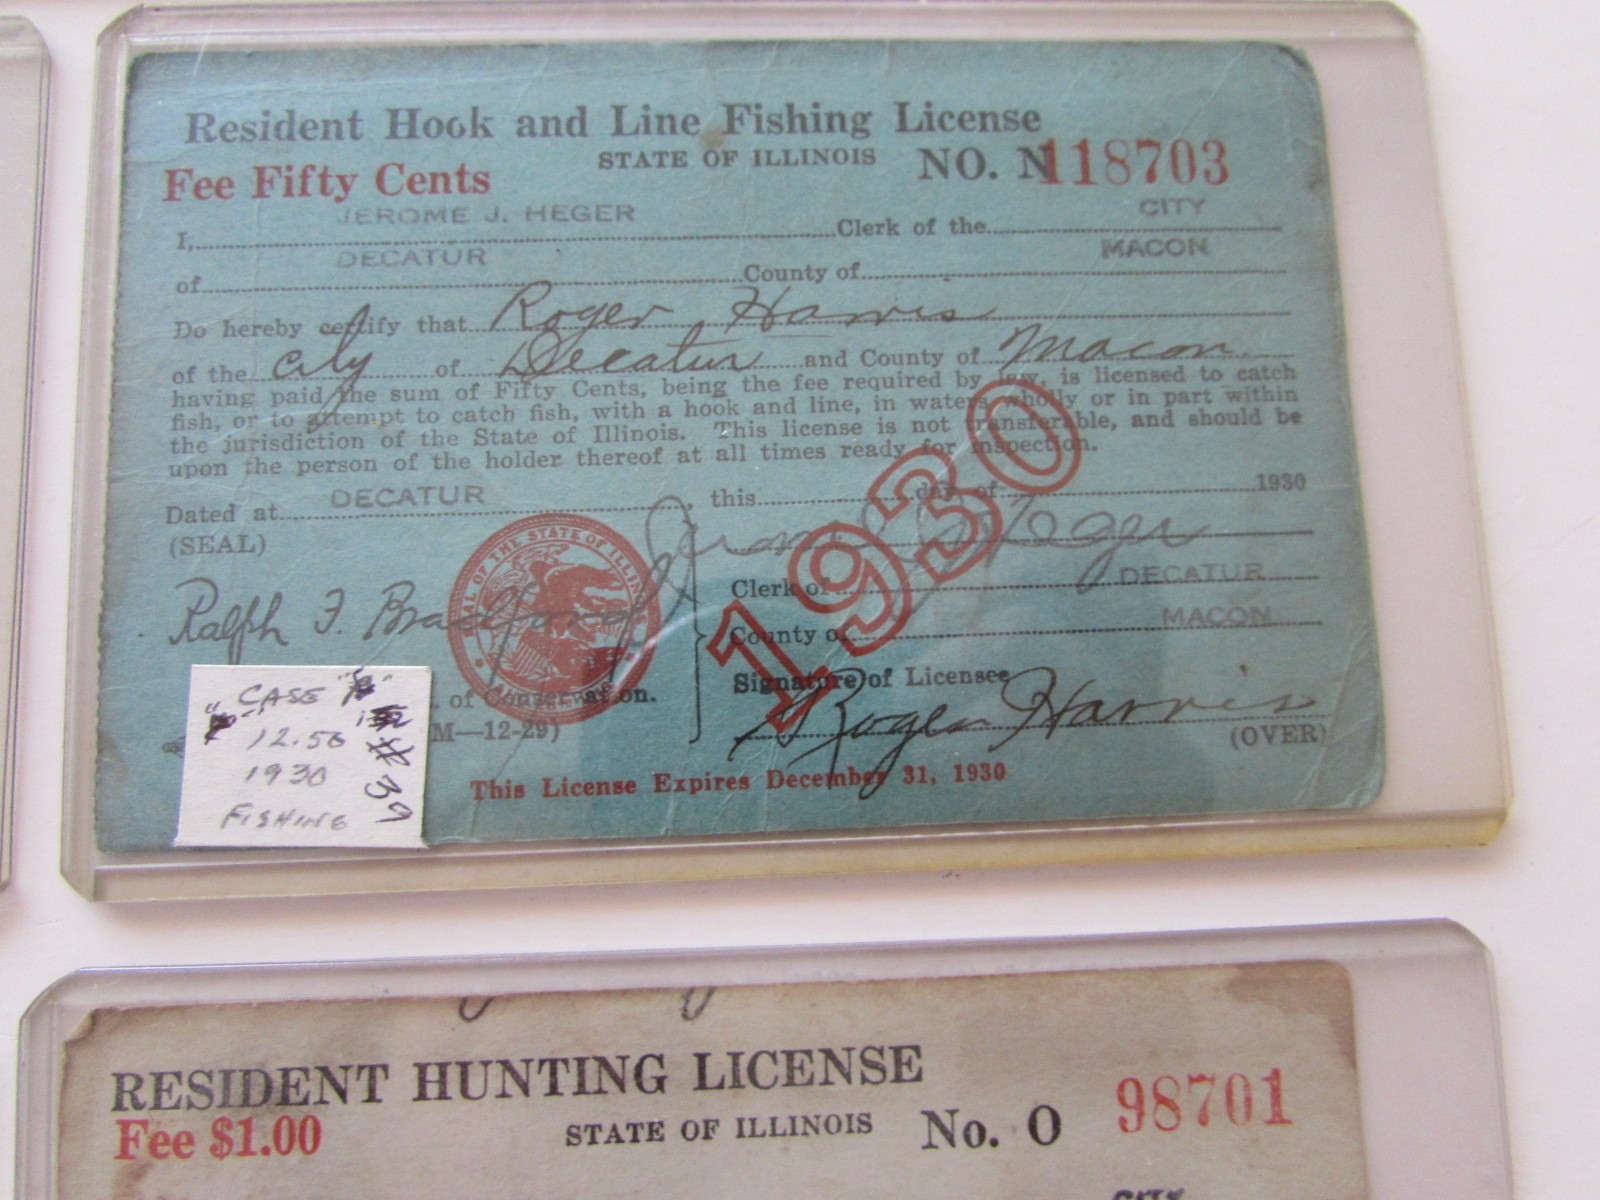 Resident Hook and Line Fishing License
STATE OF ILLINOIS NO. N118703
Fee Fifty Cents
JEROME J. HEGER CITY
I, Clerk of the
DECATUR MACON
of County of
Do hereby certify that Roger Harris
of the city of Decatur and County of Macon
having paid the sum of Fifty Cents, being the fee required by law, is licensed to catch
fish, or to attempt to catch fish, with a hook and line, in waters wholly or in part within
the jurisdiction of the State of Illinois. This license is not transferable, and should be
upon the person of the holder thereof at all times ready for inspection.
Dated at DECATUR, this day of 1930
(SEAL)
1930
SEAL OF THE STATE OF ILLINOIS
Jerome J. Heger
Clerk of DECATUR
Ralph F. Bradford
County of MACON
Signature of Licensee
. of Conservation.
Roger Harris
M—12-29)
(OVER)
This License Expires December 31, 1930
CASE
12.50
1930
FISHING
$39
RESIDENT HUNTING LICENSE
Fee $1.00 STATE OF ILLINOIS No. O 98701
CITY